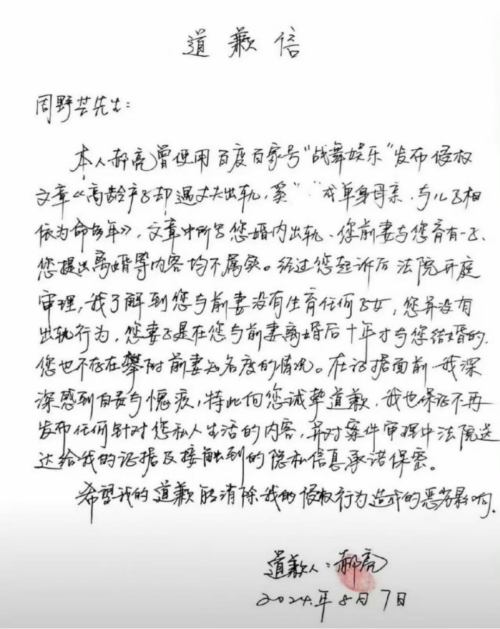 道歉信
周野芒先生:
本人郝亮曾使用百度百家号"战舞娱乐"发布侵权
文章《高龄产子却遇丈夫出轨,奚" 成单身母亲,与儿子相
依为命多年》,文章中所写您婚内出轨、您前妻与您育有一子、
您提出离婚等内容均不属实。经过您起诉后法院开庭
审理,我了解到您与前妻没有生育任何子女,您并没有
出轨行为,您妻子是在您与前妻离婚后十年才与您结婚的,
您也不存在攀附前妻知名度的情况。在证据面前,我深
深感到自责与愧疚,特此向您诚挚道歉,我也保证不再
发布任何针对您私人生活的内容,并对案件审理中法院送
达给我的证据及接触到的隐私信息承诺保密。
希望我的道歉能消除我的侵权行为造成的恶劣影响.
道歉人:郝亮
2024.年8月7日